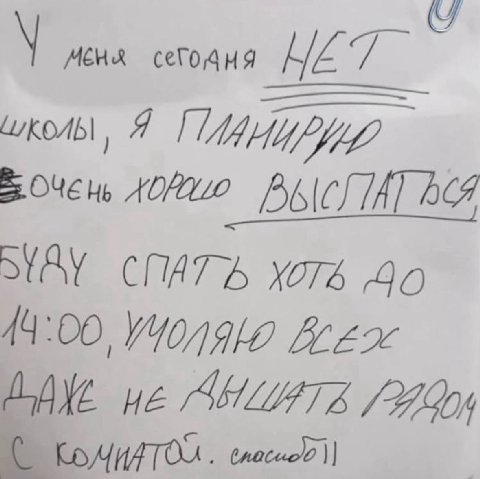 У меня сегодня НЕТ
школы, я ПЛАНИРУЮ
очень хорошо ВЫСПАТЬСЯ,
БУДУ СПАТЬ ХОТЬ ДО
14:00, УМОЛЯЮ ВСЕХ
ДАЖЕ НЕ ДЫШАТЬ РЯДОМ
С КОМНАТОЙ. спасибо!!